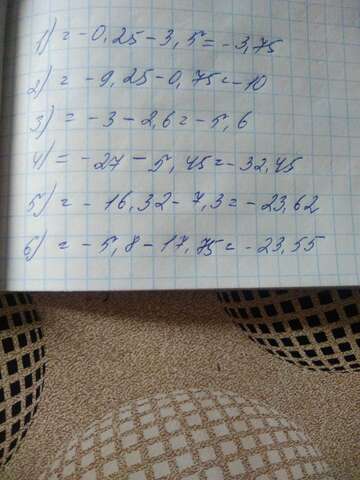 1) = -0,25-3,5=-3,75
2) = -9,25-0,75=-10
3) = -3-2,6=-5,6
4) = -27-5,45=-32,45
5) = -16,32-7,3=-23,62
6) = -5,8-17,75=-23,55